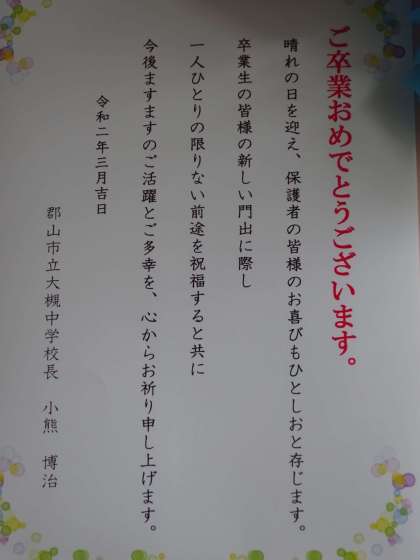 ご卒業おめでとうございます。
晴れの日を迎え、保護者の皆様のお喜びもひとしおと存じます。
卒業生の皆様の新しい門出に際し
一人ひとりの限りない前途を祝福すると共に
今後ますますのご活躍とご多幸を、心からお祈り申し上げます。
令和二年三月吉日
郡山市立大槻中学校長　小熊　博治